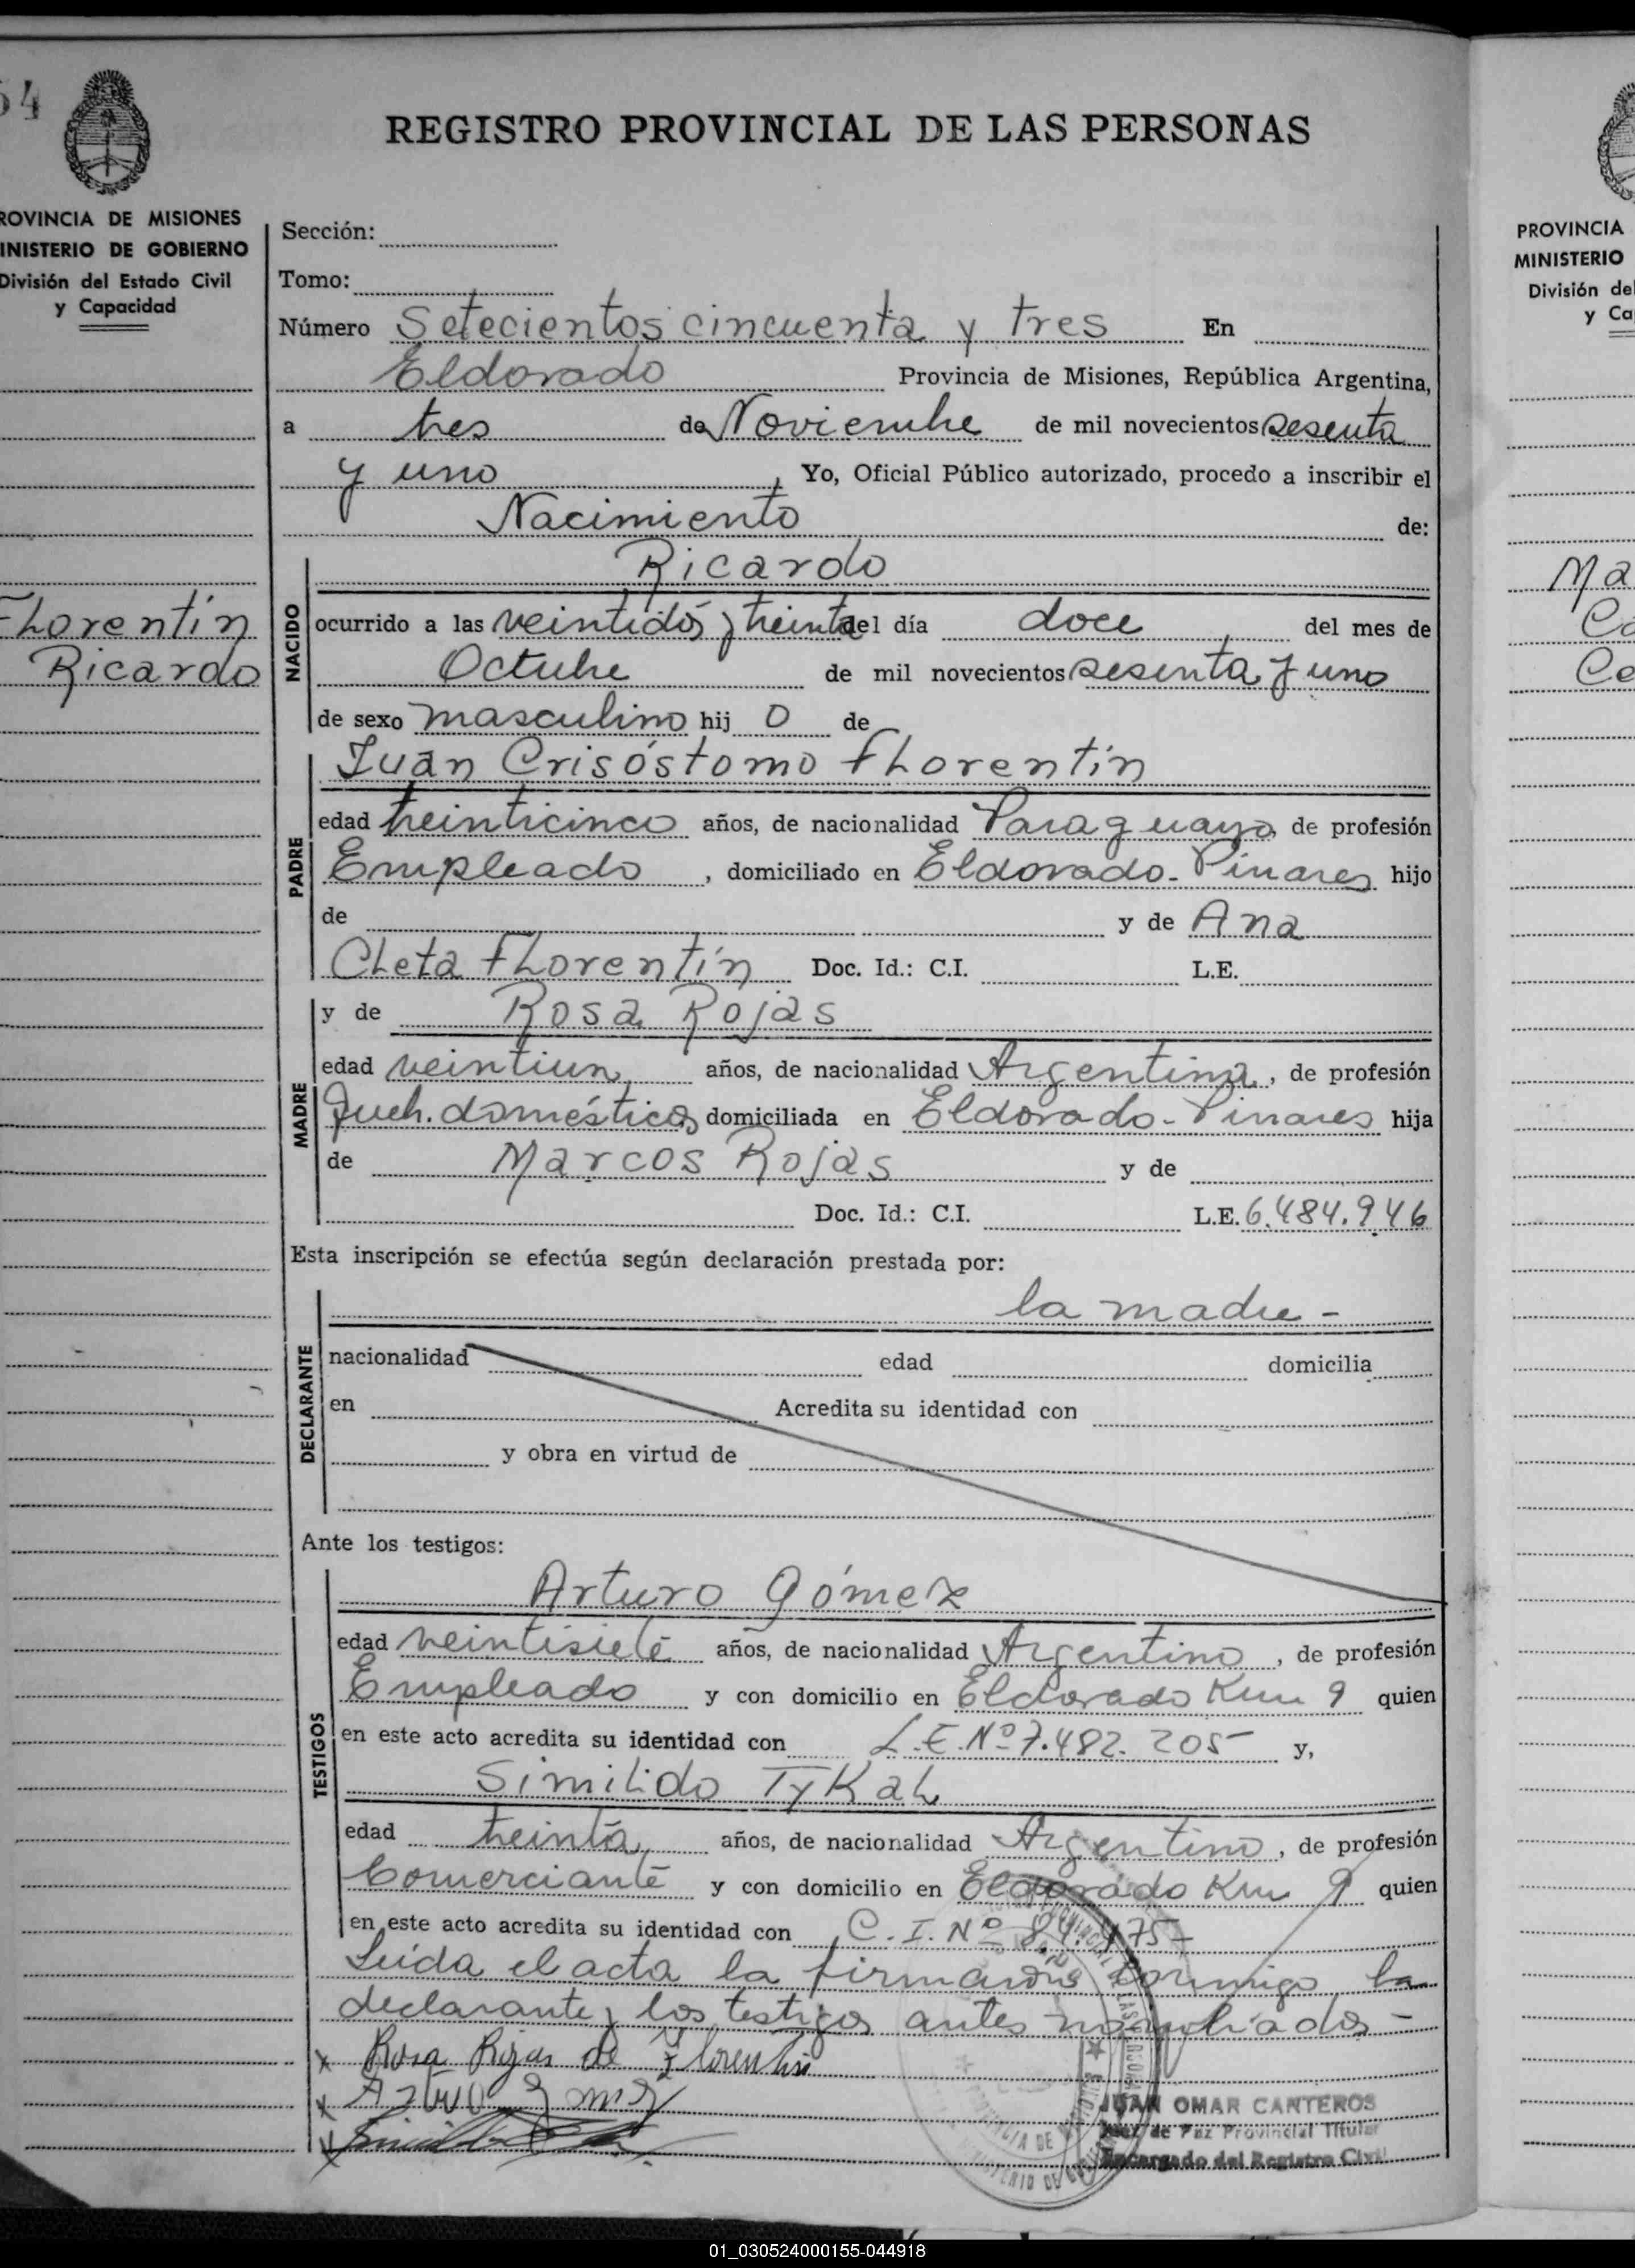 54
REGISTRO PROVINCIAL DE LAS PERSONAS
ROVINCIA DE MISIONES
INISTERIO DE GOBIERNO
División del Estado Civil
y Capacidad
Florentín
Ricardo
Sección:
Tomo:
Número Setecientos cincuenta y tres En
Eldorado Provincia de Misiones, República Argentina,
a tres de Noviembre de mil novecientos sesenta
y uno, Yo, Oficial Público autorizado, procedo a inscribir el
Nacimiento de:
NACIDO
Ricardo
ocurrido a las veintidós y treinta del día doce del mes de
Octubre de mil novecientos sesenta y uno
de sexo masculino hij o de
PADRE
Juan Crisóstomo Florentín
edad treinticinco años, de nacionalidad Paraguayo de profesión
Empleado, domiciliado en Eldorado-Pinares hijo
de y de Ana
Cleta Florentín Doc. Id.: C.I. L.E.
MADRE
y de Rosa Rojas
edad veintiun años, de nacionalidad Argentina, de profesión
Queh. domésticos domiciliada en Eldorado-Pinares hija
de Marcos Rojas y de
Doc. Id.: C.I. L.E. 6.484.946
Esta inscripción se efectúa según declaración prestada por:
DECLARANTE
la madre -
nacionalidad edad domicilia
en Acredita su identidad con
y obra en virtud de
Ante los testigos:
TESTIGOS
Arturo Gómez
edad veintisiete años, de nacionalidad Argentino, de profesión
Empleado y con domicilio en Eldorado Km 9 quien
en este acto acredita su identidad con L.E. Nº 7.482.205- y,
Similido Tykal
edad treinta años, de nacionalidad Argentino, de profesión
Comerciante y con domicilio en Eldorado Km 9 quien
en este acto acredita su identidad con C.I. Nº 84.475-
Leída el acta la firman conmigo la
declarante y los testigos antes nombrados-
x Rosa Rojas de Florentin
x Arturo Gomez
x
JUAN OMAR CANTEROS
Juez de Paz Provincial Titular
Encargado del Registro Civil
PROVINCIA
MINISTERIO
División del
y Ca
Ma
Ca
Ce
01_030524000155-044918